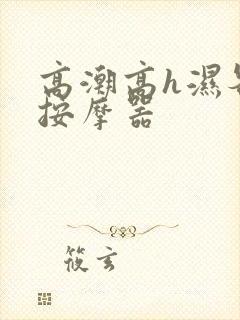 高潮高h湿
按摩器
筱玄